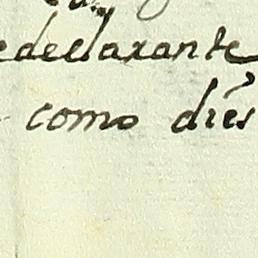 edeclarante
como dies